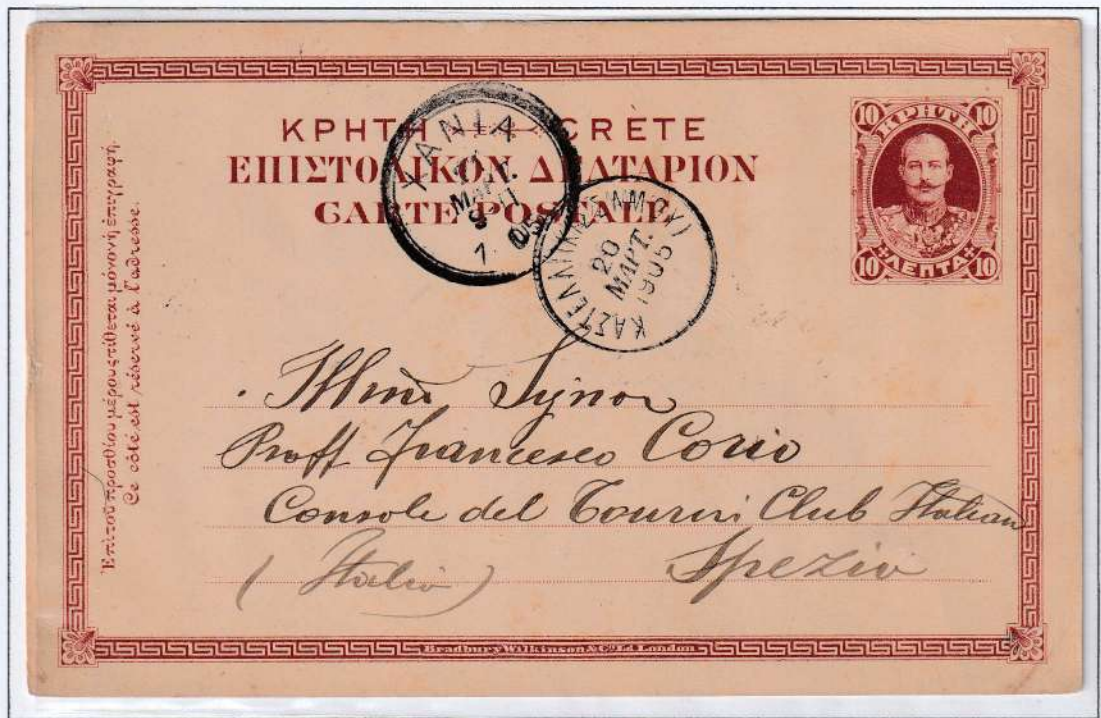 ΚΡΗΤΗ CRETE
ΕΠΙΣΤΟΛΙΚΟΝ ΔΕΛΤΑΡΙΟΝ
CARTE POSTALE
10 ΚΡΗΤΗ 10
10 ΛΕΠΤΑ 10
ΧΑΝΙΑ
21
ΜΑΡΤ.
ΚΑΣΤΕΛΛΙ (ΚΙΣΣΑΜΟΥ)
20
ΜΑΡΤ.
1905
Ἐπὶ τοῦ προσθίου μέρους τίθεται μόνον ἡ ἐπιγραφή.
Ce côté est réservé à l'adresse.
Illmo Sygnor
Proff Francesco Corio
Console del Tourin Club Italian
Spezia
(Italia)
Bradbury Wilkinson & Co Ld London